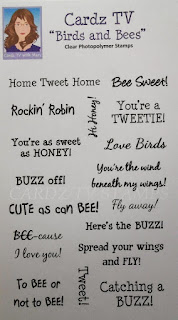 Cardz TV
"Birds and Bees"
Clear Photopolymer Stamps
Home Tweet Home
Bee Sweet!
Rockin' Robin
Hi Honey!
You're a
TWEETIE!
You're as sweet
as HONEY!
Love Birds
BUZZ off!
You're the wind
beneath my wings!
CUTE as can BEE!
Fly away!
BEE-cause
I love you!
Here's the BUZZ!
Spread your wings
and FLY!
To BEE or
not to BEE!
Tweet!
Catching a
BUZZ!